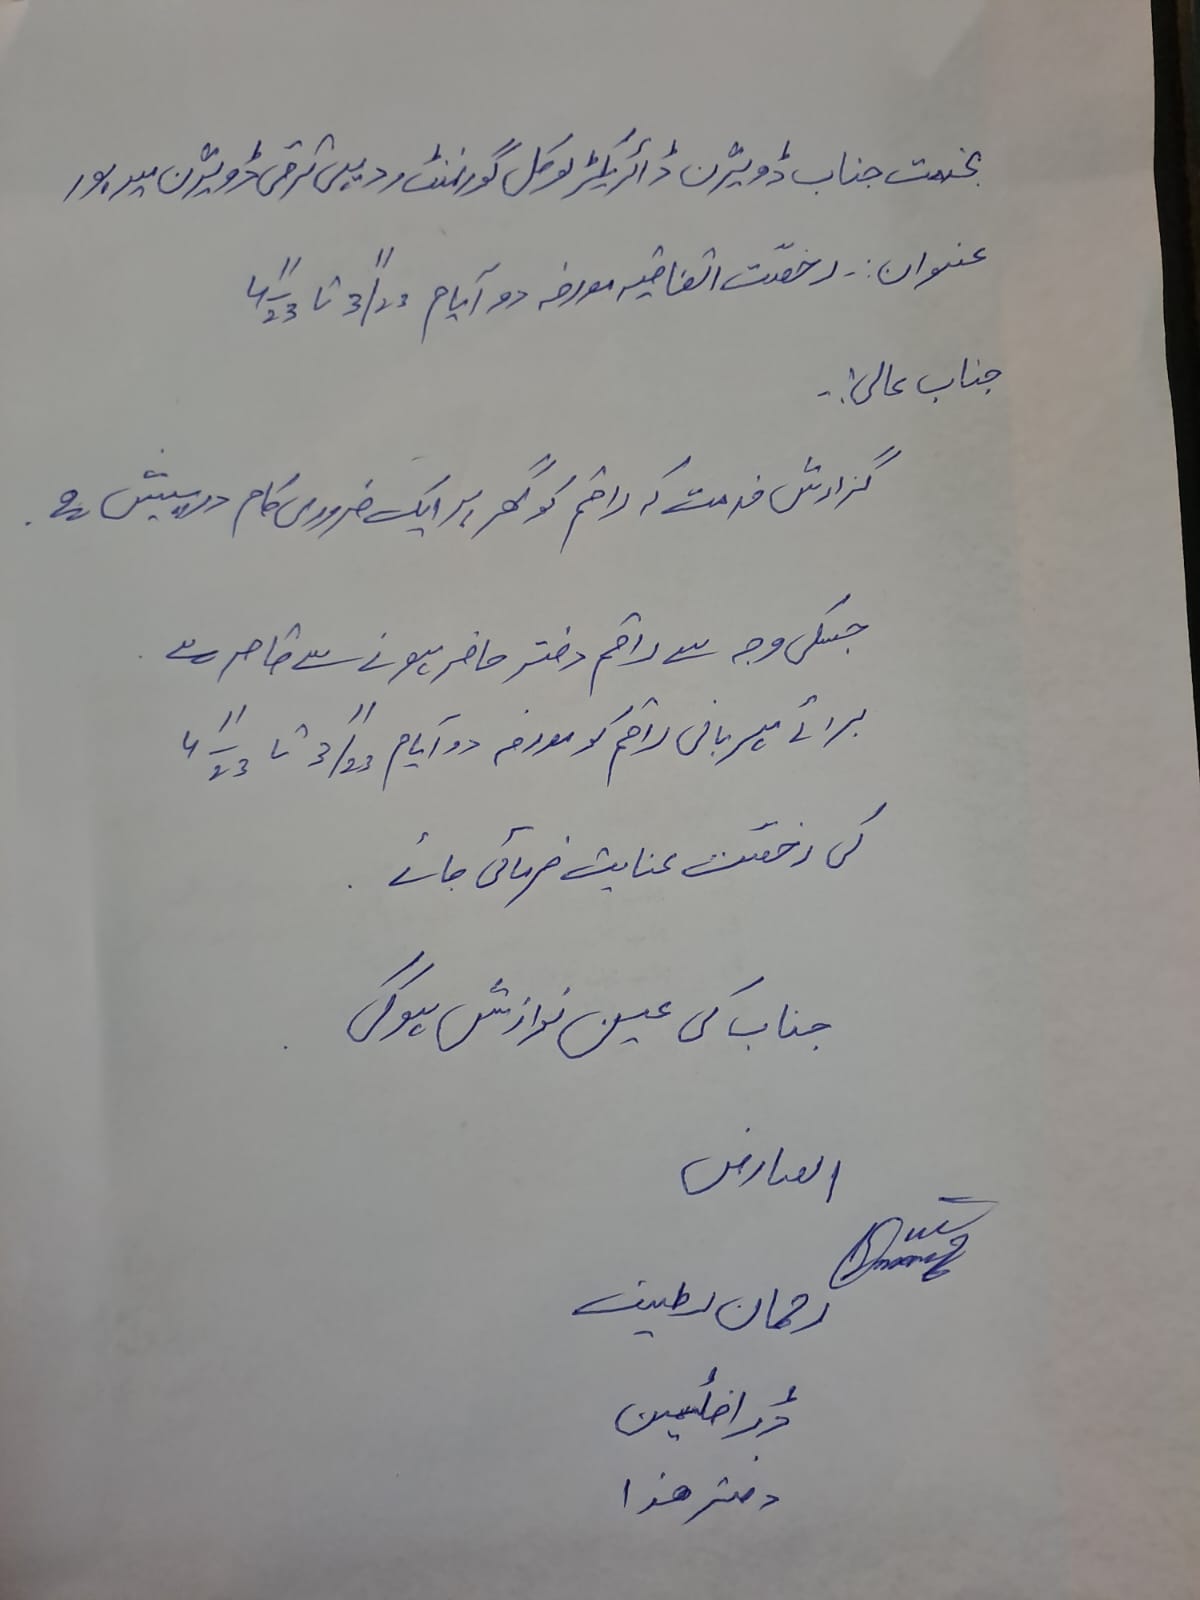 بخدمت جناب ڈویژن ڈائریکٹر لوکل گورنمنٹ و دیہی ترقی ڈویژن میرپور
عنوان:- رخصت اتفاقیہ مورخہ دو آیام 3/11/23 تا 4/11/23
جناب عالی!-
گزارش خدمت کہ راقم کو گھر پر ایک ضروری کام درپیش ہے۔
جسکی وجہ سے راقم دفتر حاضر ہونے سے قاصر ہے۔
برائے مہربانی راقم کو مورخہ دو آیام 3/11/23 تا 4/11/23
کی رخصت عنایت فرمائی جائے۔
جناب کی عین نوازش ہوگی۔
العارض
رحمان لطیف
ڈرافٹسمین
دفتر ھذا